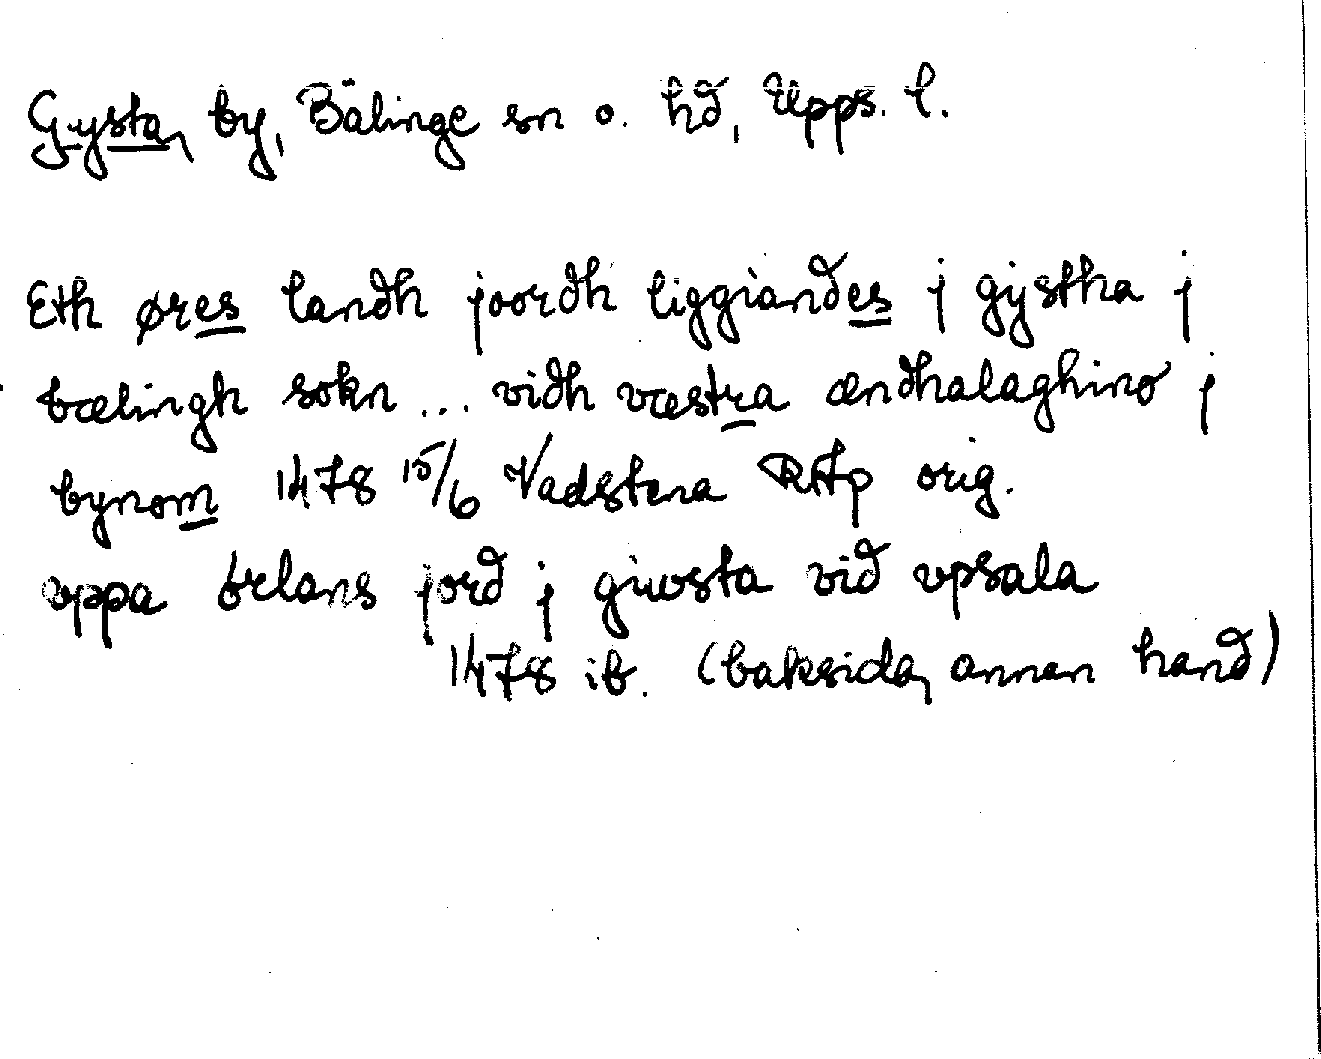 Gysta, by, Bälinge sn o. hd, Upps. l.
Eth øres landh joordh liggiandes j gystha j
bælingh sokn... vidh væstra ændhalaghino j
bynom 1478 15/6 Vadstena RAp orig.
vppa örlans jord j giwsta vid vpsala
1478 ib. (baksida, annan hand)